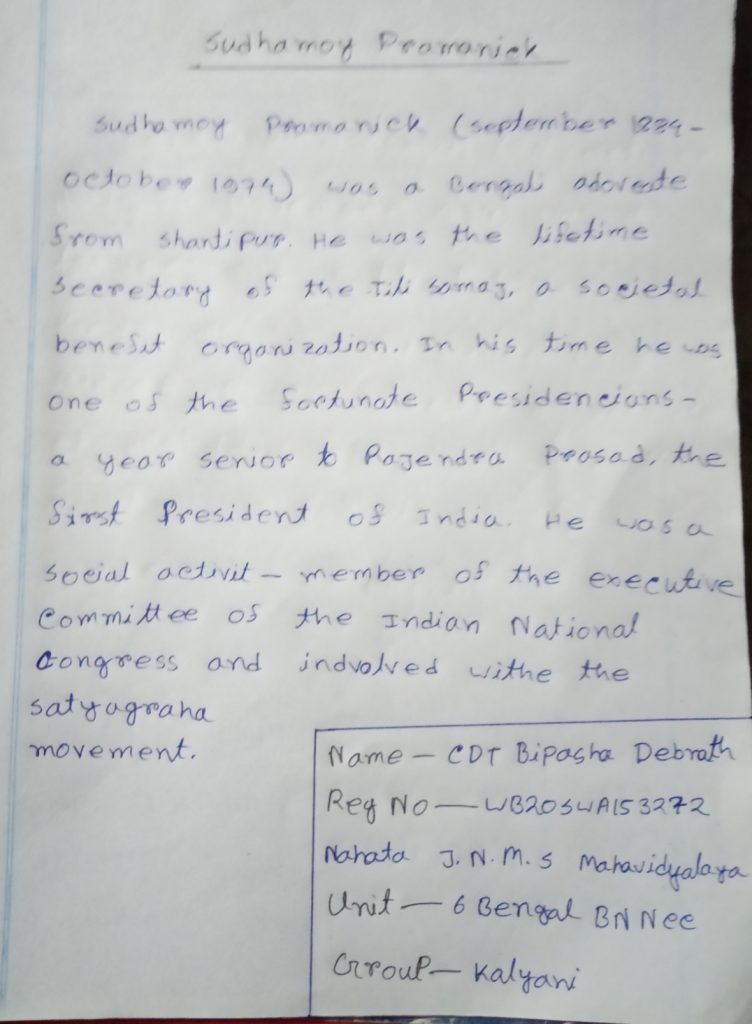 Sudhamoy Pramanick
Sudhamoy Pramanick (september 1884 -
october 1974) was a Bengali advocate
from shantipur. He was the lifetime
Secretary of the Tili Somaj, a societal
benefit organization. In his time he was
one of the fortunate Presidencians -
a year senior to Rajendra Prasad, the
first President of India. He was a
social activit - member of the executive
Committee of the Indian National
Congress and indvolved withe the
satyagraha
movement.
Name - CDT Bipasha Debnath
Reg No - WB20SWA153272
Nahata J.N.M.S Mahavidyalaya
Unit - 6 Bengal BN Ncc
Group - Kalyani